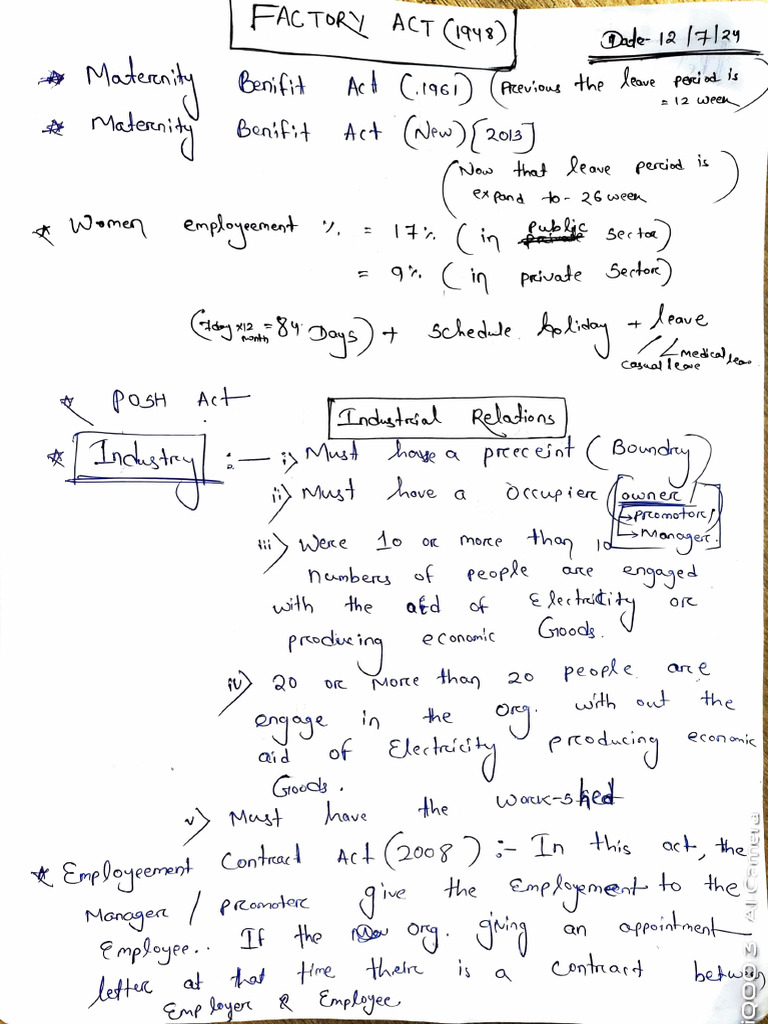 FACTORY ACT (1948)
Date- 12/7/24
* Maternity Benifit Act (.1961) (Previous the leave period is
= 12 week)
* Maternity Benifit Act (New) [2013]
(Now that leave period is
expand to - 26 week)
* Women employeement % = 17% (in public sector)
= 9% (in private sector)
(7day x12 month = 84 Days) + schedule holiday + leave
casual leave
medical leave
* POSH Act
Industrial Relations
* Industry :— i) Must have a preceint (Boundry)
ii) Must have a occupier (owner
→ promotor/
→ Manager.
iii) Were 10 or more than 10
numbers of people are engaged
with the aid of Electricity or
producing economic Goods.
iv) 20 or more than 20 people are
engage in the org. with out the
aid of Electricity producing economic
Goods.
v) Must have the work-shed
* Employeement Contract Act (2008) :- In this act, the
Manager / promoter give the Employement to the
Employee.. If the org. giving an appointment
letter at that time their is a contract between
Employer & Employee
iQOO 3 AI Camera